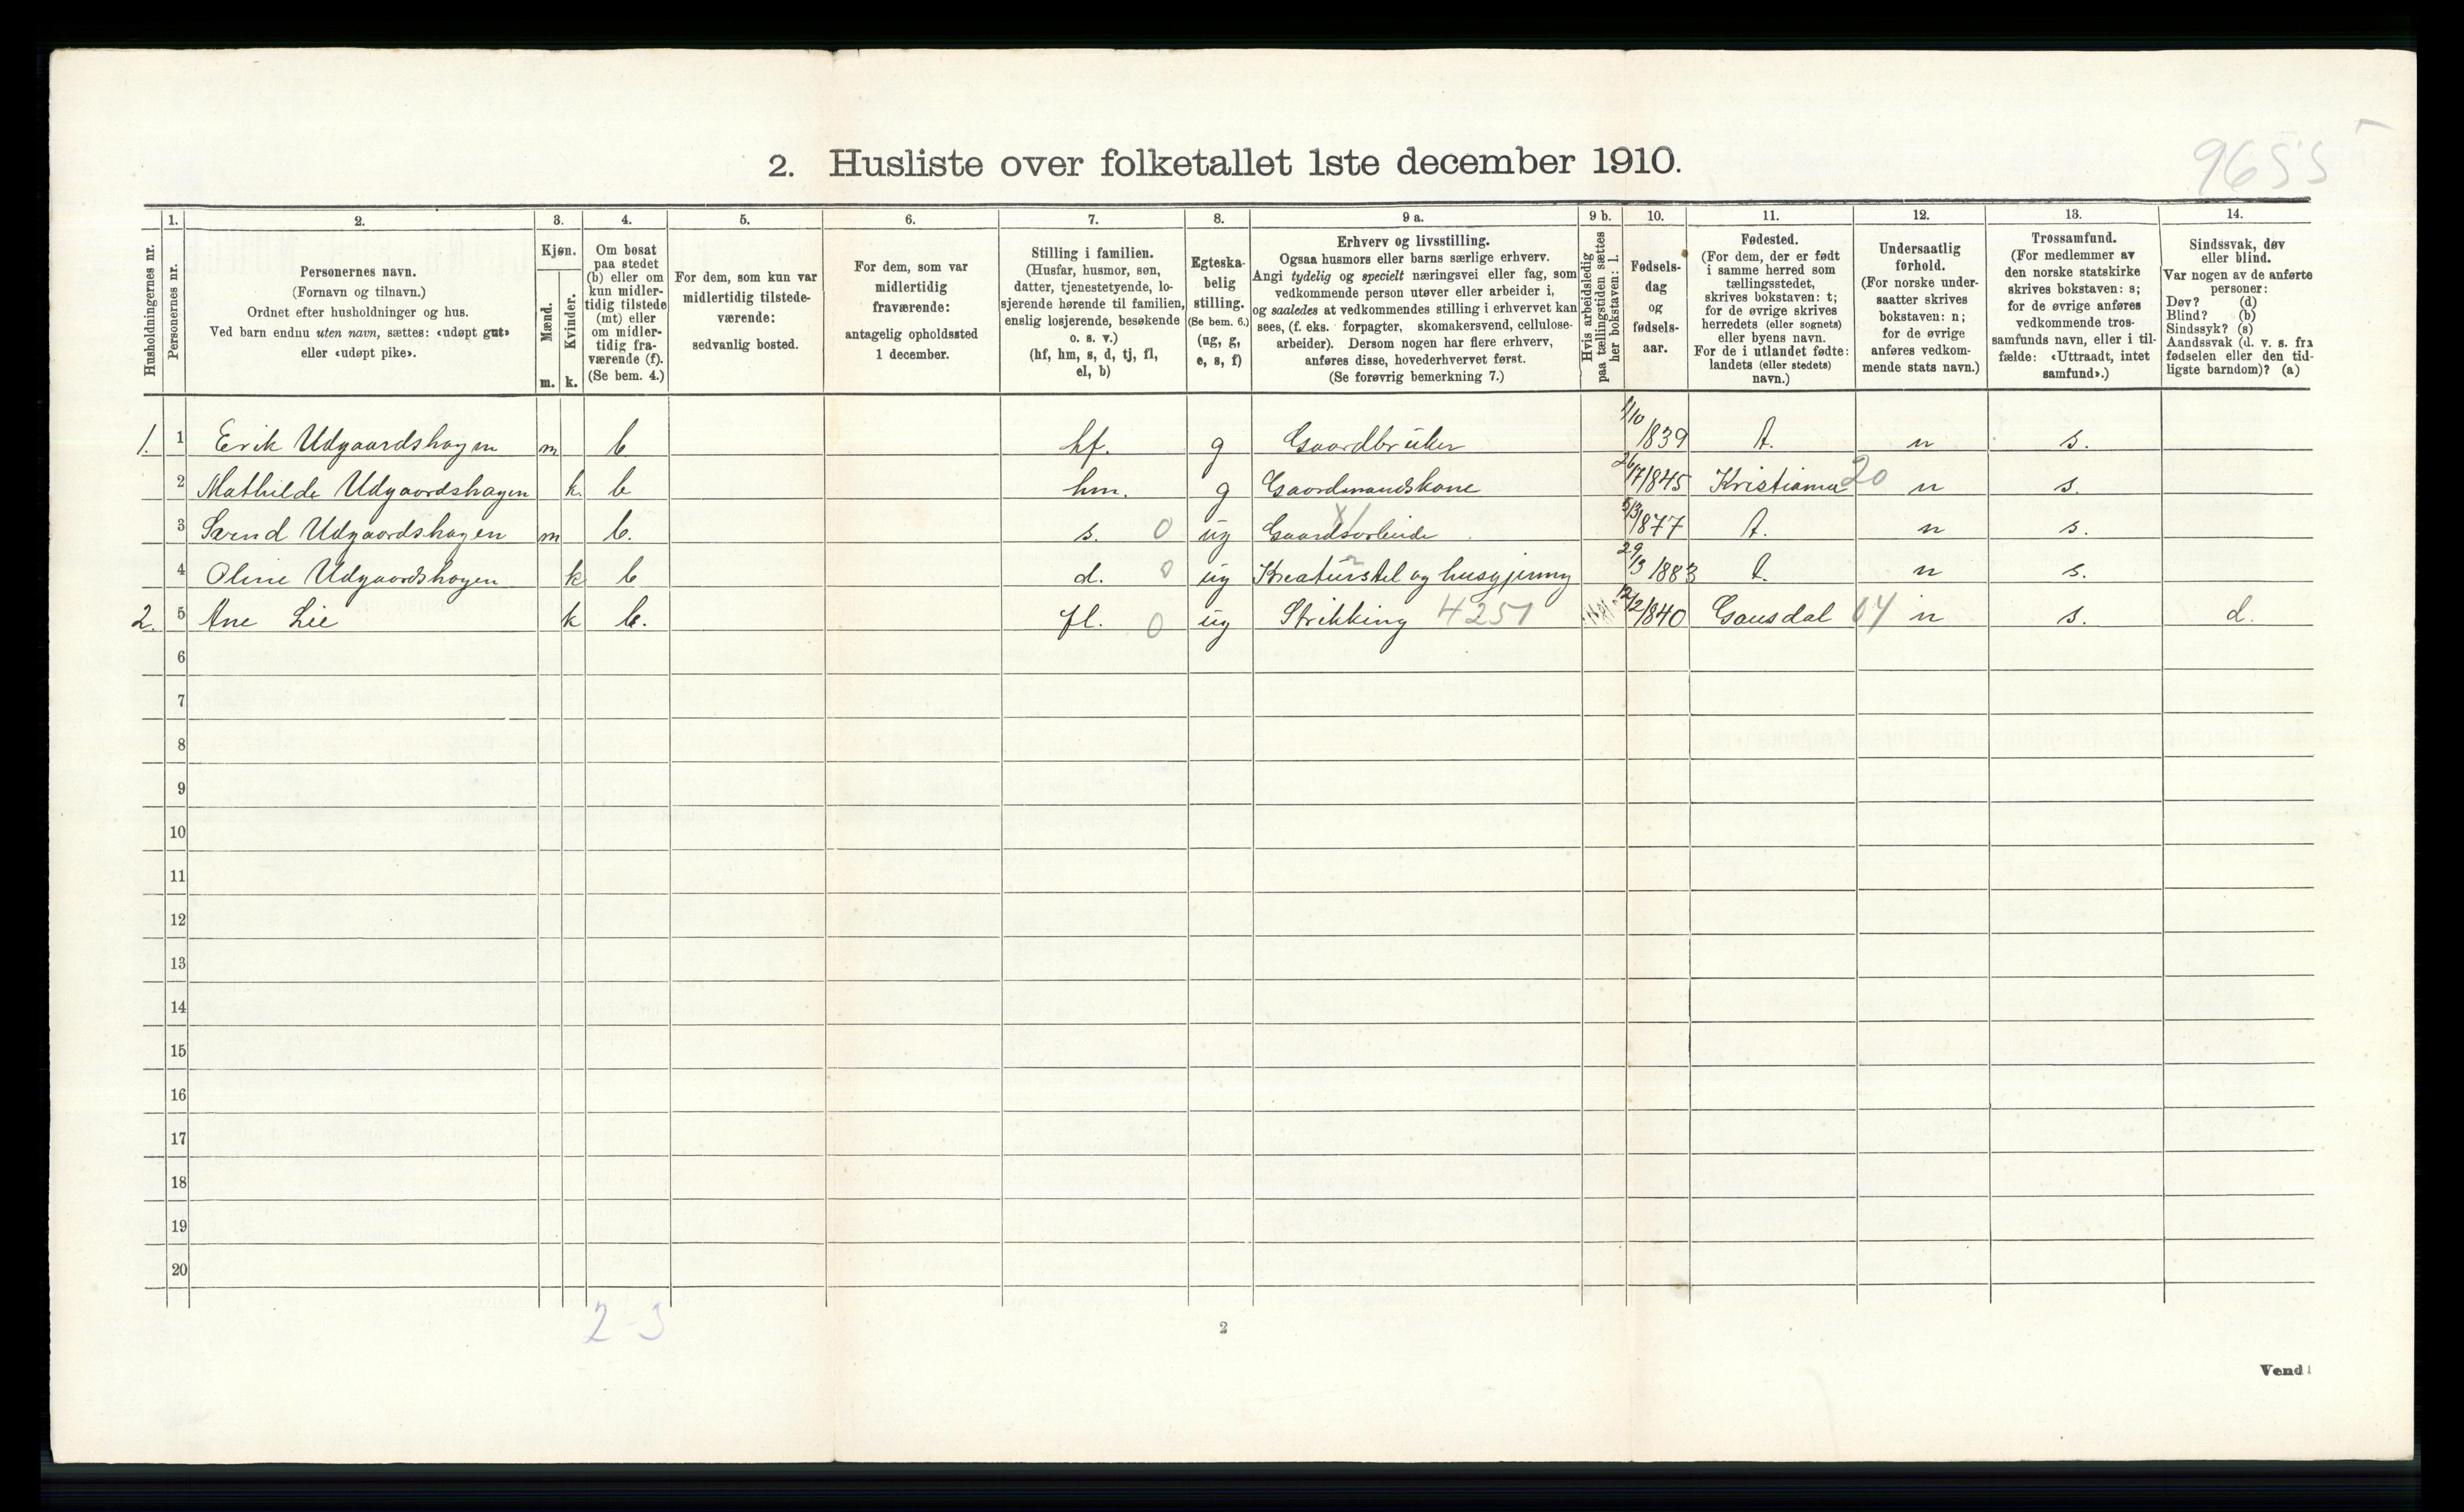 9655
2. Husliste over folketallet 1ste december 1910.
Husholdningernes nr.
1. Personernes nr.
2. Personernes navn. (Fornavn og tilnavn.) Ordnet efter husholdninger og hus. Ved barn endnu uten navn, sættes: «udøpt gut» eller «udøpt pike».
3. Kjøn. Mænd. m. Kvinder. k.
4. Om bosat paa stedet (b) eller om kun midlertidig tilstede (mt) eller om midlertidig fraværende (f). (Se bem. 4.)
5. For dem, som kun var midlertidig tilstedeværende: sedvanlig bosted.
6. For dem, som var midlertidig fraværende: antagelig opholdssted 1 december.
7. Stilling i familien. (Husfar, husmor, søn, datter, tjenestetyende, losjerende hørende til familien, enslig losjerende, besøkende o. s. v.) (hf, hm, s, d, tj, fl, el, b)
8. Egteskabelig stilling. (Se bem. 6.) (ug, g, e, s, f)
9 a. Erhverv og livsstilling. Ogsaa husmors eller barns særlige erhverv. Angi tydelig og specielt næringsvei eller fag, som vedkommende person utøver eller arbeider i, og saaledes at vedkommendes stilling i erhvervet kan sees, (f. eks. forpagter, skomakersvend, cellulosearbeider). Dersom nogen har flere erhverv, anføres disse, hovederhvervet først. (Se forøvrig bemerkning 7.)
9 b. Hvis arbeidsledig paa tællingstiden sættes her bokstaven: l.
10. Fødselsdag og fødselsaar.
11. Fødested. (For dem, der er født i samme herred som tællingsstedet, skrives bokstaven: t; for de øvrige skrives herredets (eller sognets) eller byens navn. For de i utlandet fødte: landets (eller stedets) navn.)
12. Undersaatlig forhold. (For norske undersaatter skrives bokstaven: n; for de øvrige anføres vedkommende stats navn.)
13. Trossamfund. (For medlemmer av den norske statskirke skrives bokstaven: s; for de øvrige anføres vedkommende trossamfunds navn, eller i tilfælde: «Uttraadt, intet samfund».)
14. Sindssvak, døv eller blind. Var nogen av de anførte personer: Døv? (d) Blind? (b) Sindssyk? (s) Aandssvak (d. v. s. fra fødselen eller den tidligste barndom)? (a)
1. 1 Erik Udgaardshagen m b hf. g Gaardbruker 1/10 1839 t. n s.
2 Mathilde Udgaardshagen k. b hm. g Gaardmandskone 26/7 1845 Kristiania 20 n s.
3 Svend Udgaardshagen m b. s. 0 ug Gaardsarbeide 5/3 1877 t. n s.
4 Oline Udgaardshagen k b d. 0 ug Kreaturstel og husgjerning 29/3 1883 t. n s.
2. 5 Ane Lie k b. fl. 0 ug Strikking 4251 12/2 1840 Gausdal 04 n s. d.
6
7
8
9
10
11
12
13
14
15
16
17
18
19
20
2-3
2
Vend!